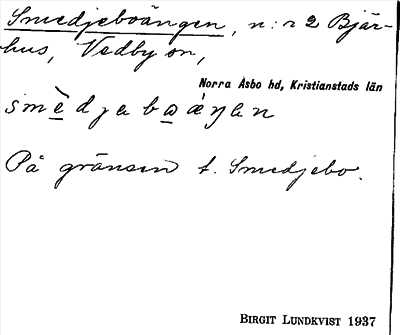 Smedjeboängen, n:r 2 Bjär-
hus, Vedby sn,
Norra Åsbo hd, Kristianstads län
smèdjeboäŋen
På gränsen t. Smedjebo.
BIRGIT LUNDKVIST 1937